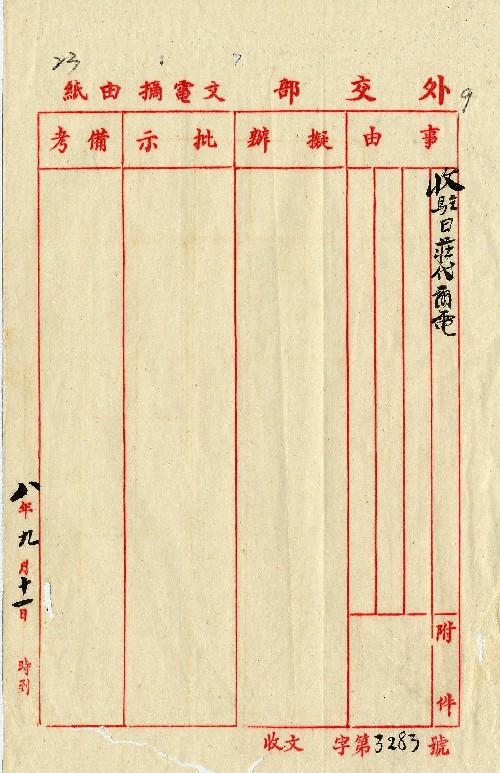 23
9
外交部文電摘由紙
事由
擬辦
批示
備考
收駐日莊代辦電
附件
八年九月十一日 時到
收文 字第3283號